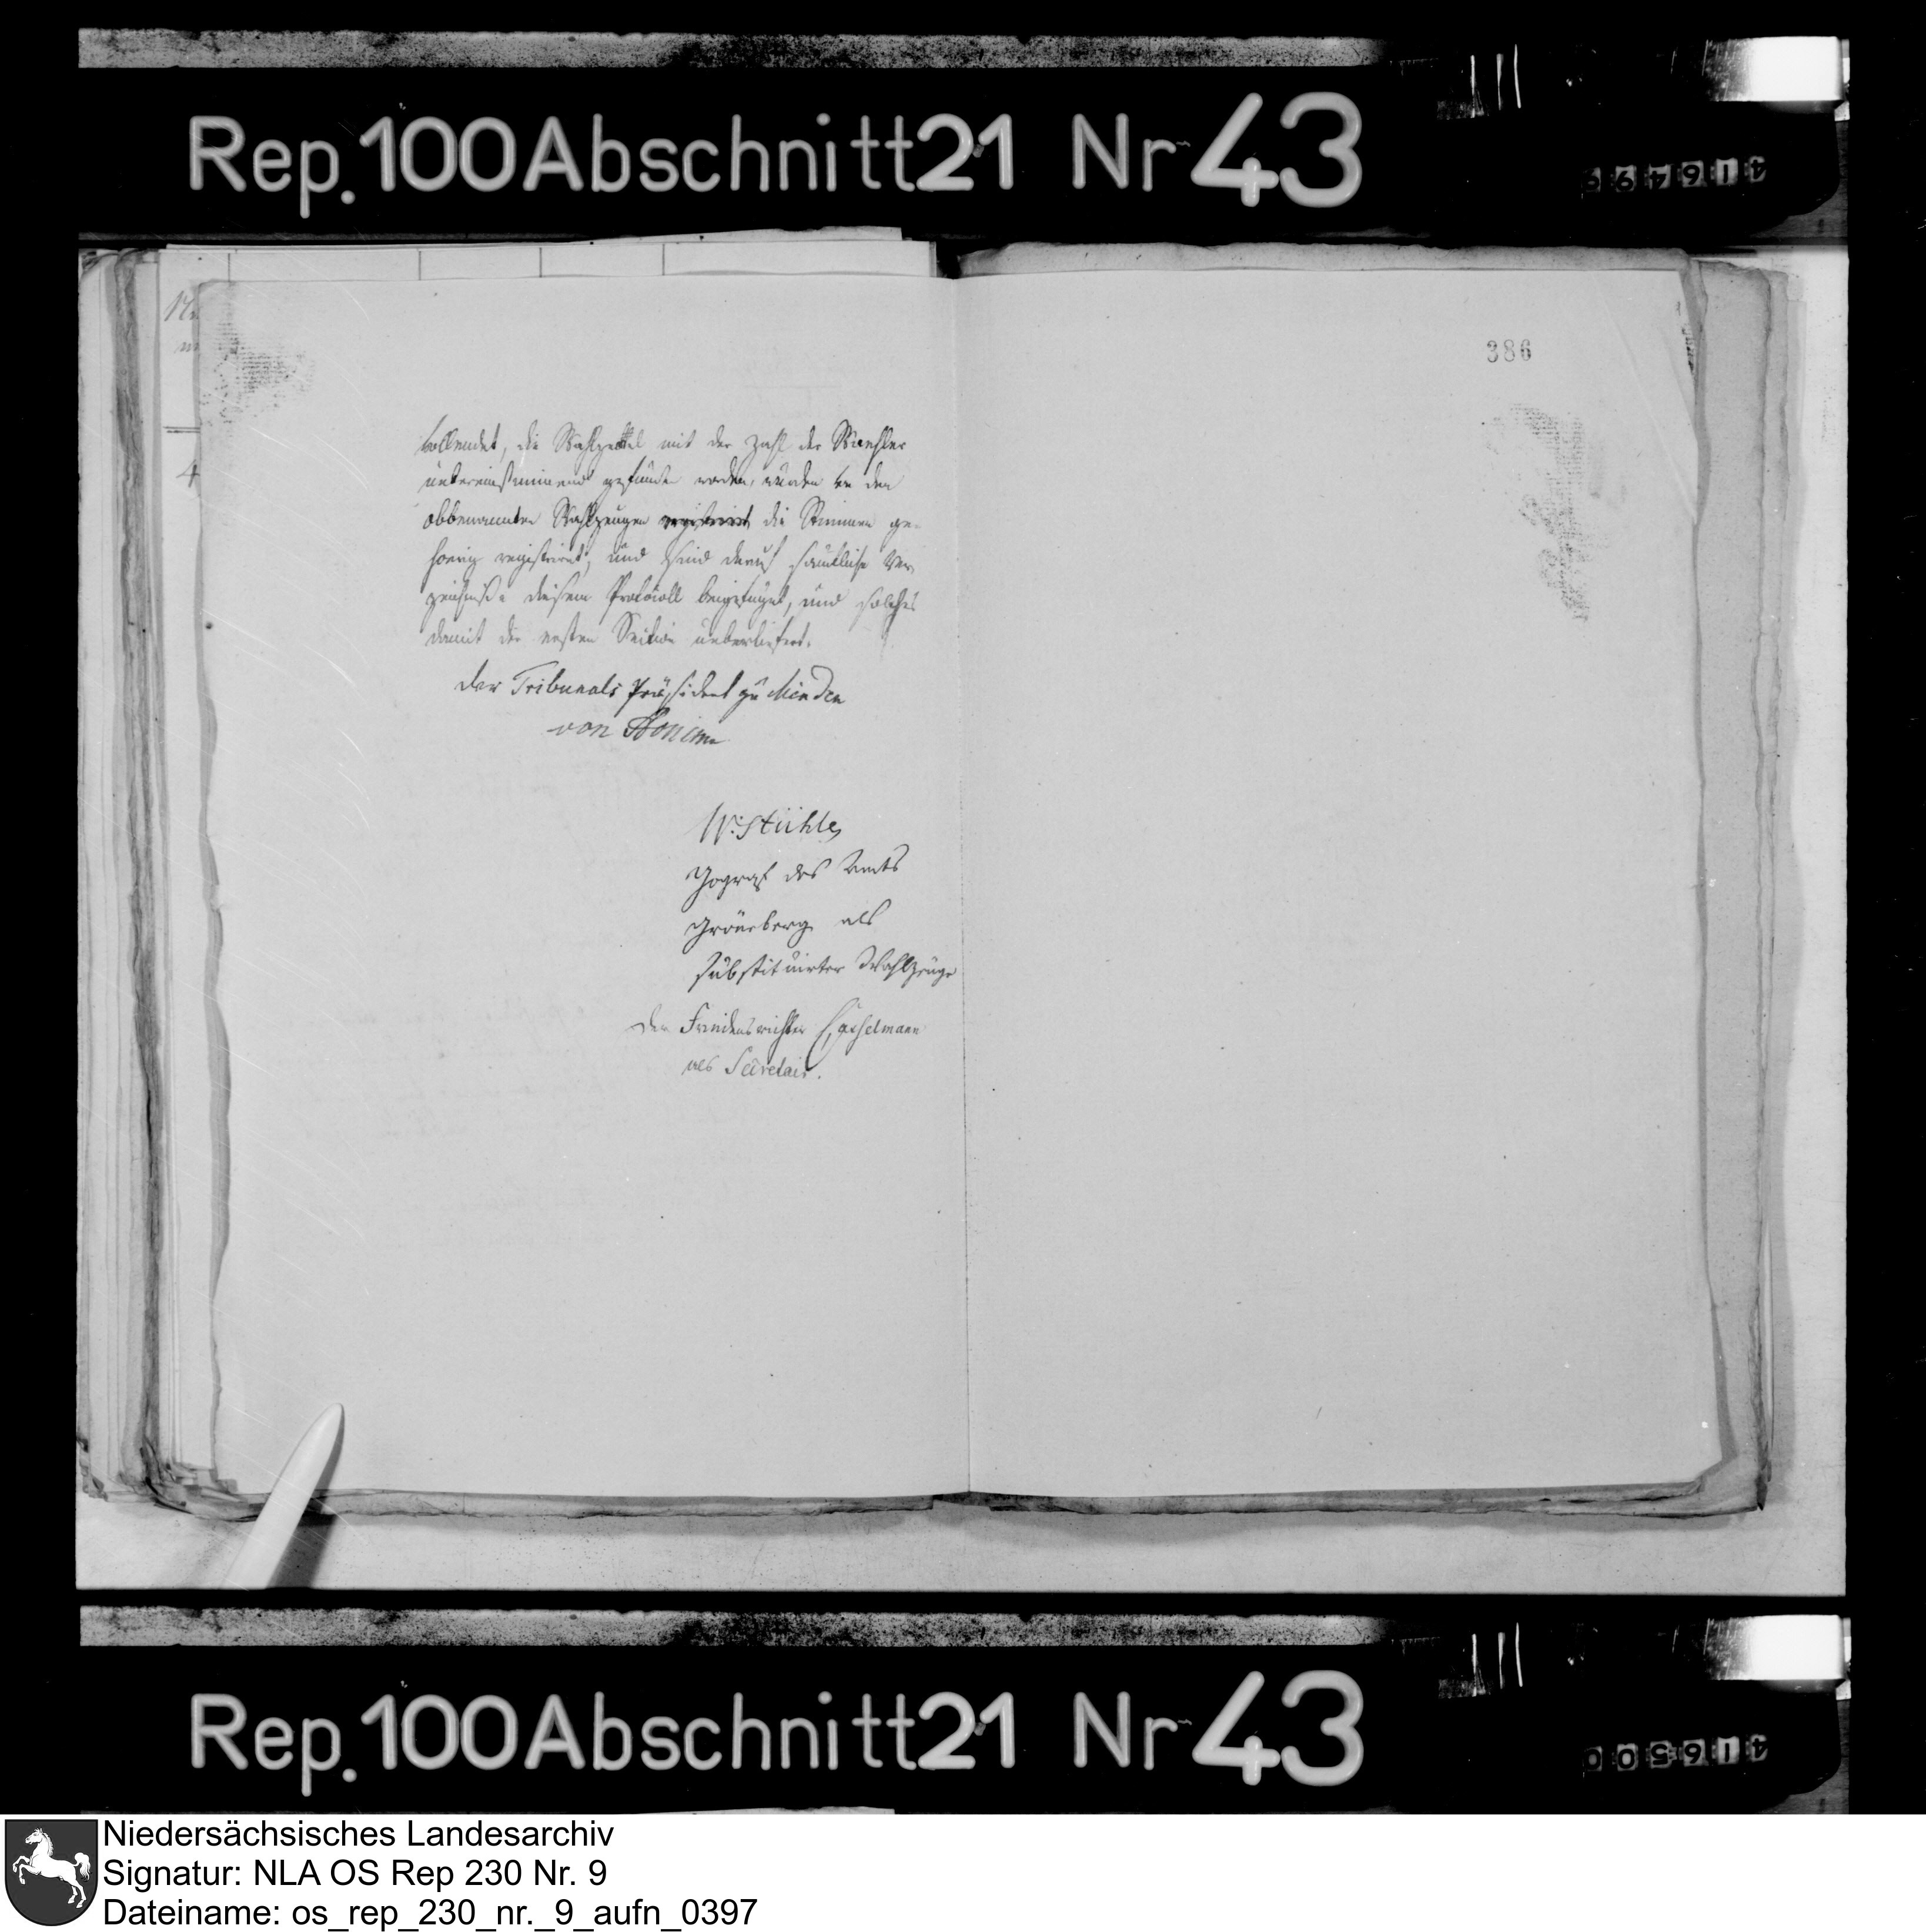 Rep. 100 Abschnitt 21 Nr 43
416499
386
vollendet, die Wahlzettel mit der Zahl der Waehler
uebereinstimmend gefunden worden, wurden von den
obbenannten Wahlzeugen registrirt die Stimmen ge-
hoerig registrirt, und sind darauf sämtliche Ver-
zeichniße diesem Protocoll beigefüget, und solches
damit der ersten Section ueberliefert.
Der Tribunals Präsident zu Minden
von
W: Stühle,
Gograf des Amts
Grönberg als
substituirter Wahlzeuge
Der Friedensrichter Casselmann
als Secretair.
4
Rep. 100 Abschnitt 21 Nr 43
416500
Niedersächsisches Landesarchiv
Signatur: NLA OS Rep 230 Nr. 9
Dateiname: os_rep_230_nr._9_aufn_0397